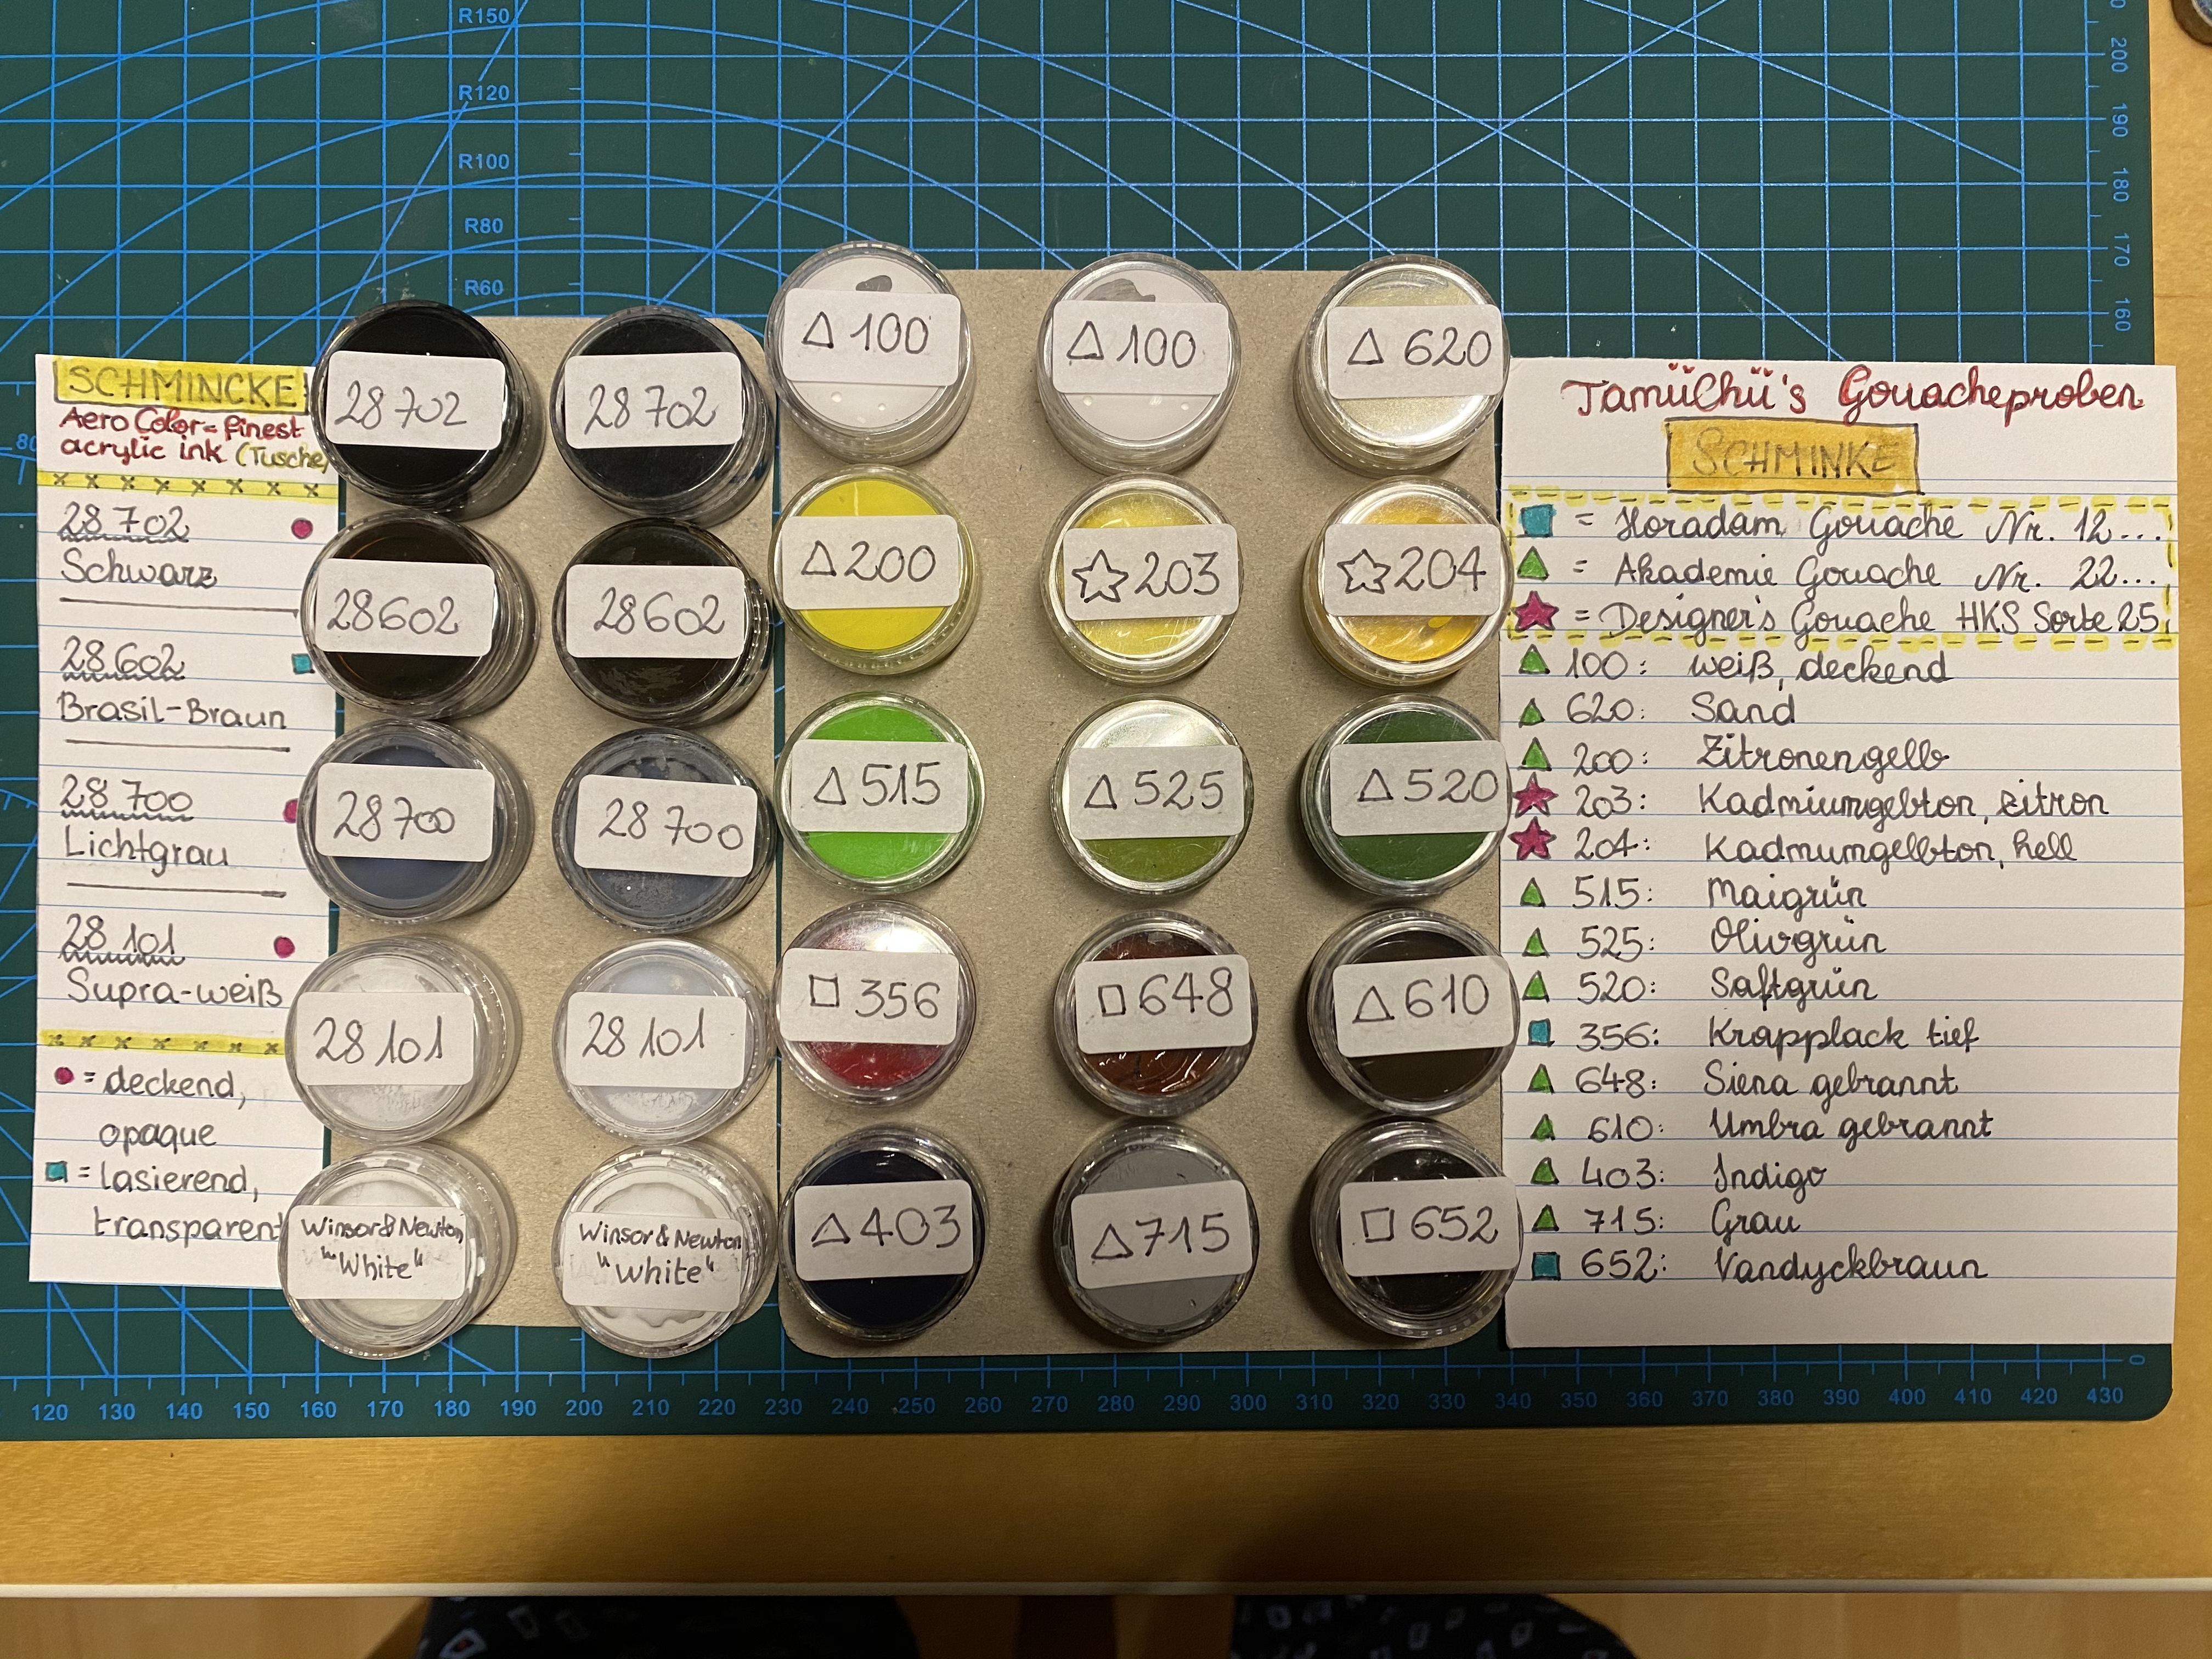 R150
R120
R100
R80
R60
200
190
180
170
160
80
SCHMINCKE
Aero Color = finest
acrylic ink (Tusche)
x x x x x x x x
28 702
Schwarz
28 602
Brasil-Braun
28 700
Lichtgrau
28 101
Supra-weiß
x x x x x x x x
= deckend,
opaque
= lasierend,
transparent
28 702
28 702
28602
28602
28700
28 700
28 101
28 101
Winsor & Newton
"White"
Winsor & Newton
"White"
△ 100
△ 100
△ 620
△ 200
☆ 203
☆ 204
△ 515
△ 525
△ 520
□ 356
□ 648
△ 610
△ 403
△ 715
□ 652
TamüChü's Gouacheproben
SCHMINKE
■ = Horadam Gouache Nr. 12...
▲ = Akademie Gouache Nr. 22...
★ = Designer's Gouache HKS Sorte 25
▲ 100: weiß, deckend
▲ 620: Sand
▲ 200: Zitronengelb
★ 203: Kadmiumgelbton, zitron
★ 204: Kadmumgelbton, hell
▲ 515: Maigrün
▲ 525: Olivgrün
▲ 520: Saftgrün
■ 356: Krapplack tief
▲ 648: Siena gebrannt
▲ 610: Umbra gebrannt
▲ 403: Indigo
▲ 715: Grau
■ 652: Vandyckbraun
0
120 130 140 150 160 170 180 190 200 210 220 230 240 250 260 270 280 290 300 310 320 330 340 350 360 370 380 390 400 410 420 430